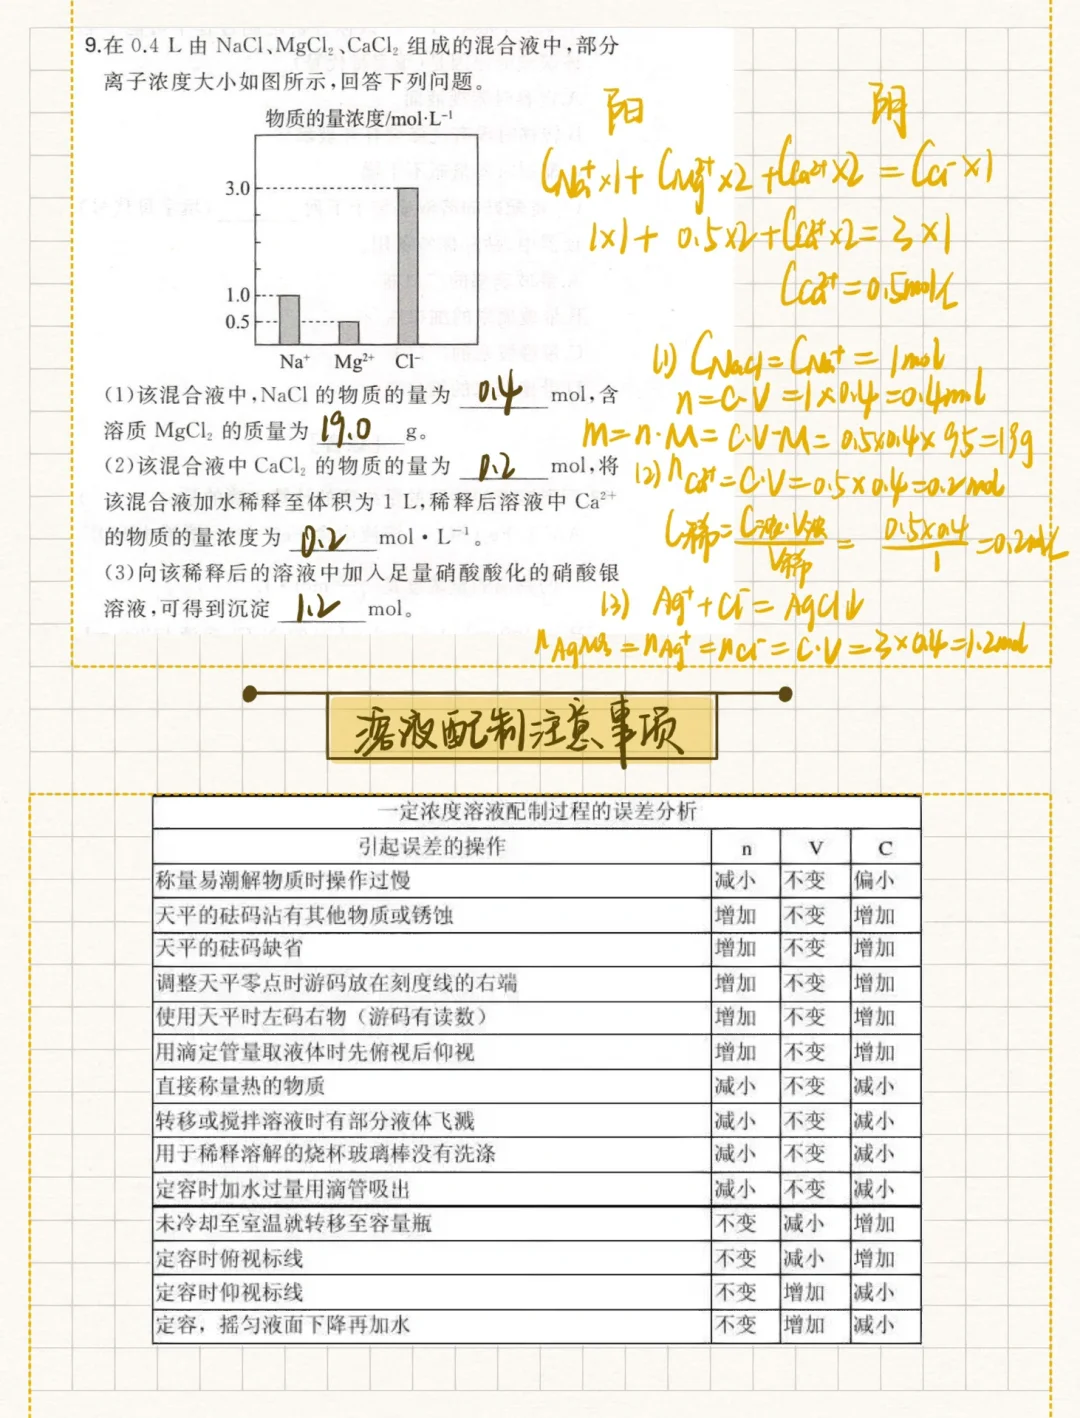 9.在 0.4 L 由 NaCl、MgCl₂、CaCl₂ 组成的混合液中,部分
离子浓度大小如图所示,回答下列问题。
物质的量浓度/mol·L⁻¹
3.0
1.0
0.5
Na⁺ Mg²⁺ Cl⁻
(1)该混合液中,NaCl 的物质的量为 0.4 mol,含
溶质 MgCl₂ 的质量为 19.0 g。
(2)该混合液中 CaCl₂ 的物质的量为 0.2 mol,将
该混合液加水稀释至体积为 1 L,稀释后溶液中 Ca²⁺
的物质的量浓度为 0.2 mol·L⁻¹。
(3)向该稀释后的溶液中加入足量硝酸酸化的硝酸银
溶液,可得到沉淀 1.2 mol。
阳 阴
CNa⁺×1+CMg²⁺×2+CCa²⁺×2=CCl⁻×1
1×1+0.5×2+CCa²⁺×2=3×1
CCa²⁺=0.5mol/L
(1) CNaCl=CNa⁺=1mol
n=C·V=1×0.4=0.4mol
m=n·M=C·V·M=0.5×0.4×95=19g
(2) nCa²⁺=C·V=0.5×0.4=0.2mol
C稀=C浓·V浓/V稀=0.5×0.4/1=0.2mol/L
(3) Ag⁺+Cl⁻=AgCl↓
nAgNO₃=nAg⁺=nCl⁻=C·V=3×0.4=1.2mol
溶液配制注意事项
一定浓度溶液配制过程的误差分析
引起误差的操作 n V C
称量易潮解物质时操作过慢 减小 不变 偏小
天平的砝码沾有其他物质或锈蚀 增加 不变 增加
天平的砝码缺省 增加 不变 增加
调整天平零点时游码放在刻度线的右端 增加 不变 增加
使用天平时左码右物（游码有读数） 增加 不变 增加
用滴定管量取液体时先俯视后仰视 增加 不变 增加
直接称量热的物质 减小 不变 减小
转移或搅拌溶液时有部分液体飞溅 减小 不变 减小
用于稀释溶解的烧杯玻璃棒没有洗涤 减小 不变 减小
定容时加水过量用滴管吸出 减小 不变 减小
未冷却至室温就转移至容量瓶 不变 减小 增加
定容时俯视标线 不变 减小 增加
定容时仰视标线 不变 增加 减小
定容，摇匀液面下降再加水 不变 增加 减小